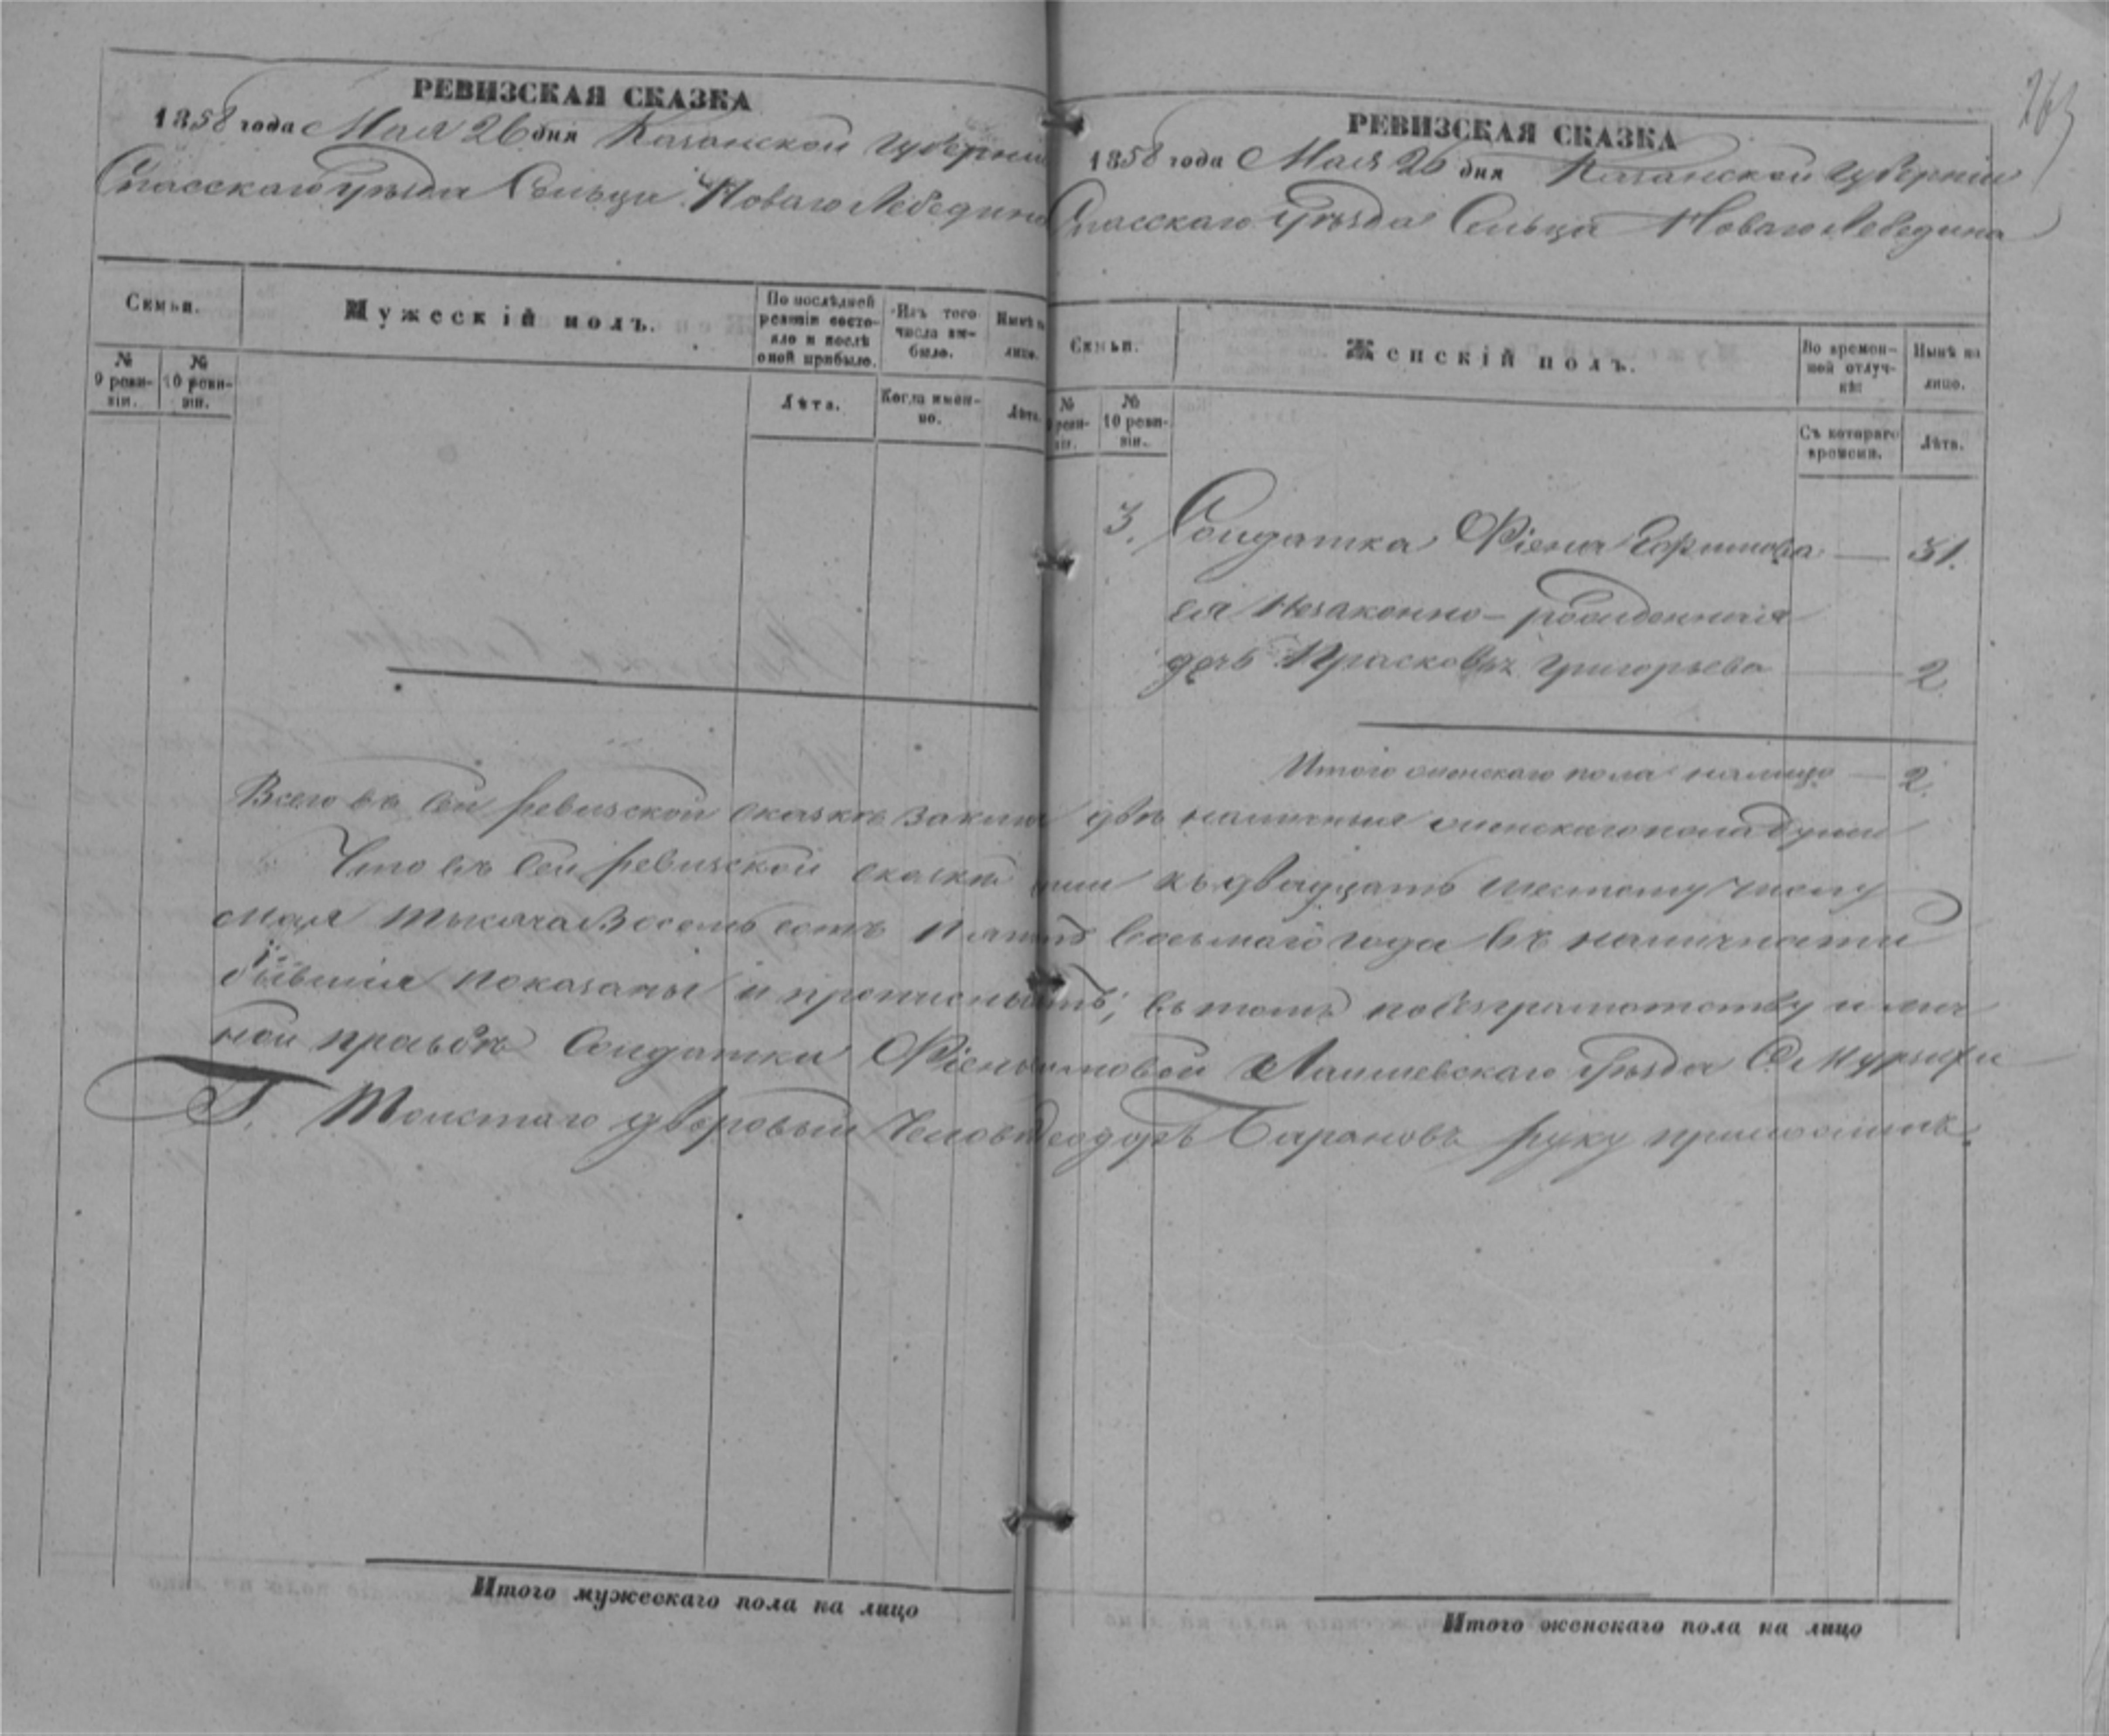 РЕВИЗСКАЯ СКАЗКА
1858 года Мая 26 дня Казанской Губерніи
Спасскаго Уѣзда Сельца Новаго Лебедина
Семьи.
Мужескій полъ.
По послѣдней ревизіи состояло и послѣ оной прибыло.
Изъ того числа выбыло.
Нынѣ на лицо.
№ 9 ревизіи.
№ 10 ревизіи.
Лѣта.
Когда именно.
Лѣта.
РЕВИЗСКАЯ СКАЗКА
263
1858 года Мая 26 дня Казанской Губерніи
Спасскаго Уѣзда Сельца Новаго Лебедина
Семьи.
Женскій полъ.
Во временной отлучкѣ
Нынѣ на лицо.
№ ревизіи.
№ 10 ревизіи.
Съ котораго времени.
Лѣта.
3. Солдатка Фіена — 31.
ея Незаконно-рожденная
дочь Прасковья Григорьева — 2
Итого женскаго пола налицо — 2.
Всего въ сей ревизской сказкѣ двѣ наличныя женскаго пола души
Что въ сей ревизской сказкѣ къ двадцать шестому числу
мая тысяча восемь сотъ восьмаго года въ наличности
бывшія показаны и въ томъ по безграмотству и лич
ной просьбѣ Солдатки Лаишевскаго Уѣзда С. Мурзихи
Г. Толстаго дворовый Барановъ руку приложилъ.
Итого мужескаго пола на лицо
Итого женскаго пола на лицо